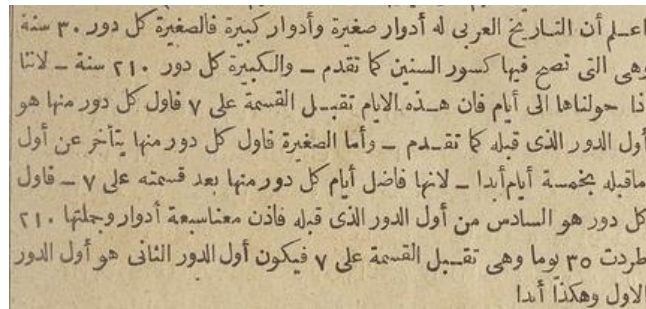 اعلم أن التاريخ العربى له أدوار صغيرة وأدوار كبيرة فالصغيرة كل دور ٣٠ سنة
وهى التى تصح فيها كسور السنين كما تقدم ــ والكبيرة كل دور ٢١٠ سنة ــ لاننا
ذا حولناها الى أيام فان هـذه الايام تقبل القسمة على ٧ فاول كل دور منها هو
أول الدور الذى قبله كما تقدم ــ وأما الصغيرة فاول كل دور منها يتأخر عن أول
ماقبله بخمسة أيام أبدا ــ لانها فاضل أيام كل دور منها بعد قسمته على ٧ ــ فاول
كل دور هو السادس من أول الدور الذى قبله فاذن معنا سبعة أدوار وجملتها ٢١٠
طردت ٣٥ يوما وهى تقبل القسمة على ٧ فيكون أول الدور الثانى هو أول الدور
الاول وهكذا أبدا